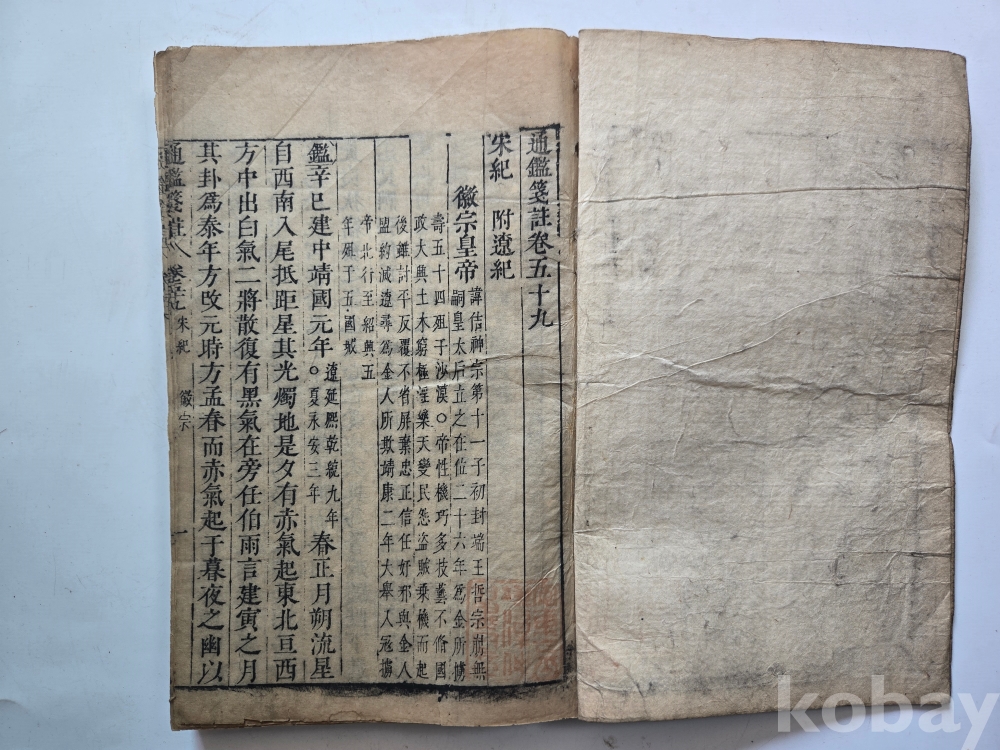 通鑑箋註卷五十九
宋紀 附遼紀
徽宗皇帝
諱佶神宗第十一子初封端王哲宗崩無
嗣皇太后立之在位二十六年為金所擄
壽五十四殂于沙漠○帝性機巧多技藝不脩國
政大興土木窮極淫樂天變民怨盜賊乘機而起
後雖討平反覆不省屏棄忠正信任奸邪與金人
盟約滅遼尋為金人所敗靖康二年大舉入冦擄
帝北行至紹興五
年殂于五國城
鑑辛巳建中靖國元年
遼延熙乾統九年
○夏永安三年
春正月朔流星
自西南入尾抵距星其光燭地是夕有赤氣起東北亘西
方中出白氣二將散復有黑氣在旁任伯雨言建寅之月
其卦爲泰年方改元時方孟春而赤氣起于暮夜之幽以
通鑑箋註
宋紀
徽宗
一
kobay